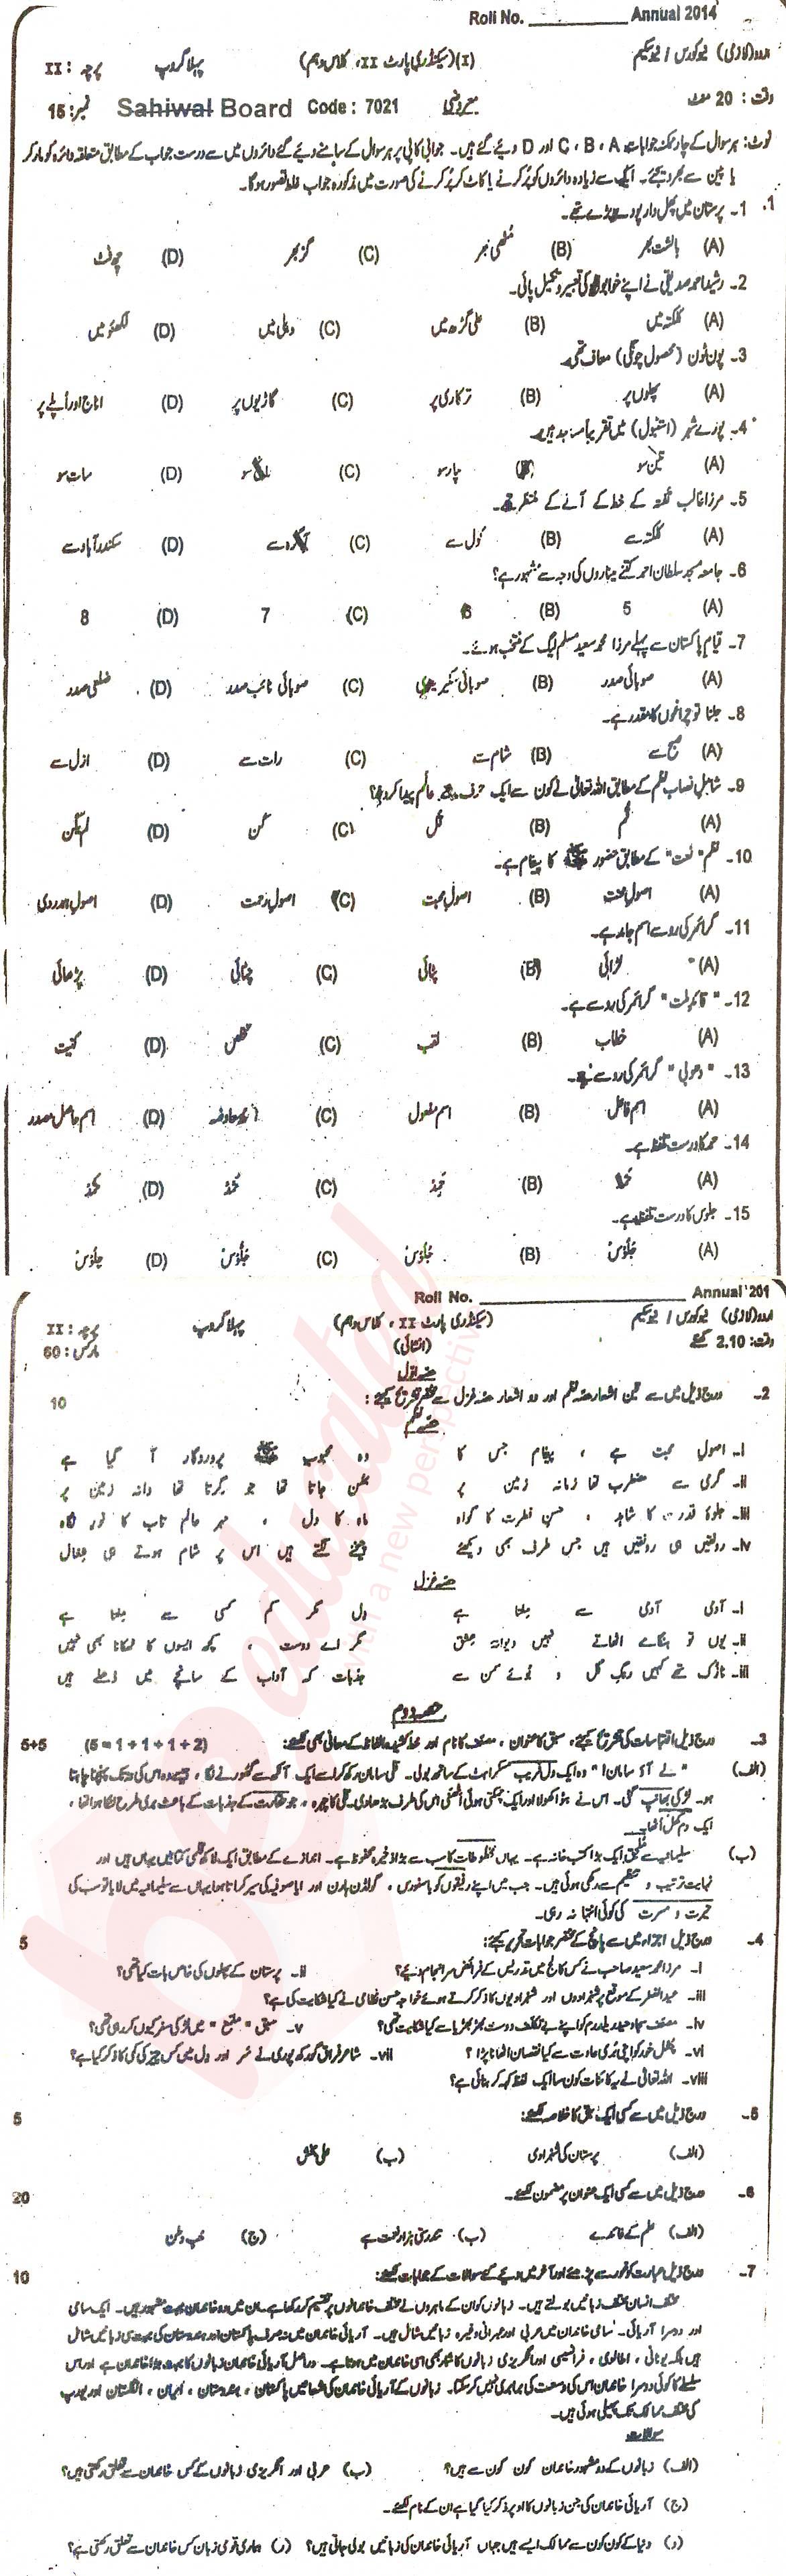 Roll No. ____________ Annual 2014
اردو(لازمی) نیو کورس / نیو سکیم (I)(سیکنڈری پارٹ II، کلاس دہم) پہلا گروپ پرچہ : II
وقت : 20 منٹ معروضی Code : 7021 Sahiwal Board نمبر: 15
نوٹ: ہر سوال کے چار ممکنہ جوابات C ، B ، A اور D دیئے گئے ہیں۔ جوابی کاپی پر ہر سوال کے سامنے دیئے گئے دائروں میں سے درست جواب کے مطابق متعلقہ دائرہ کو مارکر
یا پین سے بھر دیجئے۔ ایک سے زیادہ دائروں کو پُر کرنے یا کاٹ کر پُر کرنے کی صورت میں مذکورہ جواب غلط تصور ہو گا۔
1. 1۔ پرستان میں پھل دار پودے بڑے تھے۔
(A) بالشت بھر (B) مُٹھی بھر (C) گز بھر (D) چھ فٹ
2۔ رشید احمد صدیقی نے اپنے خوابوں کی تعبیر و تکمیل پائی۔
(A) کلکتہ میں (B) علی گڑھ میں (C) دہلی میں (D) لکھنؤ میں
3۔ پون ٹون (محصول چونگی) معاف تھی۔
(A) پھلوں پر (B) ترکاری پر (C) گاڑیوں پر (D) اناج اور اُپلے پر
4۔ پورے شہر (استنبول) میں تقریباً مساجد ہیں۔
(A) تین سو (B) چار سو (C) پانچ سو (D) سات سو
5۔ مرزا غالب تفتہ کے خط کے آنے کے منتظر تھے۔
(A) کلکتہ سے (B) کول سے (C) آگرہ سے (D) سکندر آباد سے
6۔ جامعہ مسجد سلطان احمد کتنے میناروں کی وجہ سے مشہور ہے؟
(A) 5 (B) 6 (C) 7 (D) 8
7۔ قیامِ پاکستان سے پہلے مرزا محمد سعید مسلم لیگ کے منتخب ہوئے۔
(A) صوبائی صدر (B) صوبائی سیکریٹری (C) صوبائی نائب صدر (D) ضلعی صدر
8۔ جلنا تو چراغوں کا مقدر ہے۔
(A) صبح سے (B) شام سے (C) رات سے (D) ازل سے
9۔ شاملِ نصاب نظم کے مطابق اللہ تعالیٰ نے کون سے ایک حرف سے عالم پیدا کر دیا؟
(A) قُم (B) قُل (C) کُن (D) لم یکن
10۔ نظم "نعت" کے مطابق حضور ﷺ کا پیغام ہے۔
(A) اصولِ محنت (B) اصولِ محبت (C) اصولِ رحمت (D) اصولِ ہمدردی
11۔ گرائمر کی رو سے اسم جامد ہے۔
(A) لڑائی (B) پٹائی (C) چٹائی (D) پڑھائی
12۔ "قائدِ ملت" گرائمر کی رو سے ہے۔
(A) خطاب (B) لقب (C) تخلص (D) کنیت
13۔ "دھوبی" گرائمر کی رو سے ہے۔
(A) اسم فاعل (B) اسم مفعول (C) اسم معاوضہ (D) اسم حاصل مصدر
14۔ حمد کا درست تلفظ ہے۔
(A) (B) (C) (D)
15۔ جلوس کا درست تلفظ ہے۔
(A) جلوس (B) جلوس (C) جلوس (D) جلوس
Roll No. ____________ Annual '201
اردو(لازمی) نیو کورس / نیو سکیم (سیکنڈری پارٹ II ، کلاس دہم) پہلا گروپ پرچہ : II
وقت: 2.10 گھنٹے (انشائی) مارکس: 60
حصہ اوّل
2۔ درج ذیل میں سے تین اشعار حصہ نظم اور دو اشعار حصہ غزل سے مختصر تشریح کیجئے: 10
حصہ نظم
i۔ اصولِ محبت ہے ، پیغام جس کا وہ محبوب ﷺ پروردگار آ گیا ہے
ii۔ گرمی سے مضطرب تھا زمانہ زمین پر بھن جاتا تھا جو گرتا تھا دانہ زمین پر
iii۔ جلوۂ قدرت کا شاہد ، حسنِ فطرت کا گواہ ماہ کا دل ، مہرِ عالم تاب کا نورِ نگاہ
iv۔ رونقیں ہی رونقیں ہیں جس طرف بھی دیکھئے بجنے لگتے ہیں اس پر شام ہوتے ہی دھمال
حصہ غزل
i۔ آدمی آدمی سے ملتا ہے دل مگر کم کسی سے ملتا ہے
ii۔ یوں تو ہنگامے اٹھاتے نہیں دیوانۂ عشق مگر اے دوست ، کچھ ایسوں کا ٹھکانا بھی نہیں
iii۔ نازک تھے کہیں رنگِ گل و بوئے سمن سے جذبات کہ آداب کے سانچے میں ڈھلے ہیں
حصہ دوم
3۔ درج ذیل اقتباسات کی تشریح کیجئے، سبق کا عنوان ، مصنف کا نام اور خط کشیدہ الفاظ کے معانی بھی لکھئے: (5 = 1 + 1 + 1 + 2) 5+5
(الف) "لے آؤ سامان!" وہ ایک دل فریب مسکراہٹ کے ساتھ بولی۔ قلی سامان رکھ کر اسے ایک آنکھ سے گھورنے لگا ، جیسے وہ اس کی تہ تک پہنچنا چاہتا
ہو۔ لڑکی بھانپ گئی۔ اس نے بٹوا کھولا اور ایک چمکتی ہوئی اٹھنی اس کی طرف بڑھا دی۔ قلی کا چہرہ ، جو حقارت کے جذبات کے باعث بری طرح لٹکا ہوا تھا ،
ایک دم کھل اُٹھا۔
(ب) سلیمانیہ سے ملحق ایک بڑا کتب خانہ ہے۔ یہاں مخطوطات کا سب سے بڑا ذخیرہ محفوظ ہے۔ اندازے کے مطابق ایک لاکھ قلمی کتابیں یہاں ہیں اور
نہایت ترتیب و تنظیم سے رکھی ہوئی ہیں۔ جب میں اپنے رفیقوں کو باسفورس ، گولڈن ہارن اور ایا صوفیہ کی سیر کراتا ہوا یہاں سے سلیمانیہ میں لایا تو سب کی
حیرت و مسرت کی کوئی انتہا نہ رہی۔
4۔ درج ذیل اجزاء میں سے پانچ کے مختصر جوابات تحریر کیجئے: 5
i۔ مرزا محمد سعید صاحب نے کس کالج میں تدریس کے فرائض سر انجام دیئے؟ ii۔ پرستان کے پھلوں کی خاص بات کیا تھی؟
iii۔ عید الفطر کے موقع پر شہزادوں اور شہزادیوں کا ذکر کرتے ہوئے خواجہ حسن نظامی نے کیا شکایت کی ہے؟
iv۔ مصنف سجاد حیدر یلدرم کو اپنے بے تکلف دوست بھڑبھڑیا سے کیا شکایت تھی؟ v۔ سبق "ملمع" میں لڑکی سفر کیوں کر رہی تھی؟
vi۔ چغل خور کو اپنی بُری عادت سے کیا نقصان اٹھانا پڑا ؟ vii۔ شاعر فراق گورکھ پوری نے سر اور دل میں کس چیز کی کمی کا ذکر کیا ہے؟
viii۔ اللہ تعالیٰ نے یہ کائنات کون سا ایک لفظ کہہ کر بنائی ہے؟
5۔ درج ذیل میں سے کسی ایک سبق کا خلاصہ لکھئے: 5
(الف) پرستان کی شہزادی (ب) علی بخش
6۔ درج ذیل میں سے کسی ایک عنوان پر مضمون لکھئے۔ 20
(الف) علم کے فائدے (ب) تندرستی ہزار نعمت ہے (ج) حب وطن
7۔ درج ذیل عبارت کو غور سے پڑھئے اور آخر میں دیئے گئے سوالات کے جوابات لکھئے: 10
مختلف انسان مختلف زبانیں بولتے ہیں۔ زبانوں کو ان کے ماہروں نے مختلف خاندانوں پر تقسیم کر رکھا ہے۔ ان میں دو خاندان بہت مشہور ہیں۔ ایک سامی
اور دوسرا آریائی۔ سامی خاندان میں عربی اور عبرانی وغیرہ زبانیں شامل ہیں۔ آریائی خاندان میں نہ صرف پاکستان اور ہندوستان کی بہت سی زبانیں شامل
ہیں بلکہ یونانی ، اطالوی ، فرانسیسی اور انگریزی زبانوں کا شمار بھی اسی خاندان میں ہوتا ہے۔ دراصل آریائی خاندان زبانوں کا بہت بڑا خاندان ہے اور اس
سلسلے کا کوئی دوسرا خاندان اس کی وسعت کی برابری نہیں کر سکتا۔ زبانوں کے آریائی خاندان کی شاخیں پاکستان ، ہندوستان ، ایران ، انگلستان اور یورپ
کی مختلف ممالک تک پھیلی ہوئی ہیں۔
سوالات
(الف) زبانوں کے دو مشہور خاندان کون کون سے ہیں؟ (ب) عربی اور انگریزی زبانوں کے کس خاندان سے تعلق رکھتی ہیں؟
(ج) آریائی خاندان کی جن زبانوں کا اوپر ذکر کیا گیا ہے ان کے نام لکھئے۔
(د) دنیا کے کون کون سے ممالک ایسے ہیں جہاں آریائی خاندان کی زبانیں بولی جاتی ہیں؟ (ر) ہماری قومی زبان کس خاندان سے تعلق رکھتی ہے؟
beeducated
with a new perspective